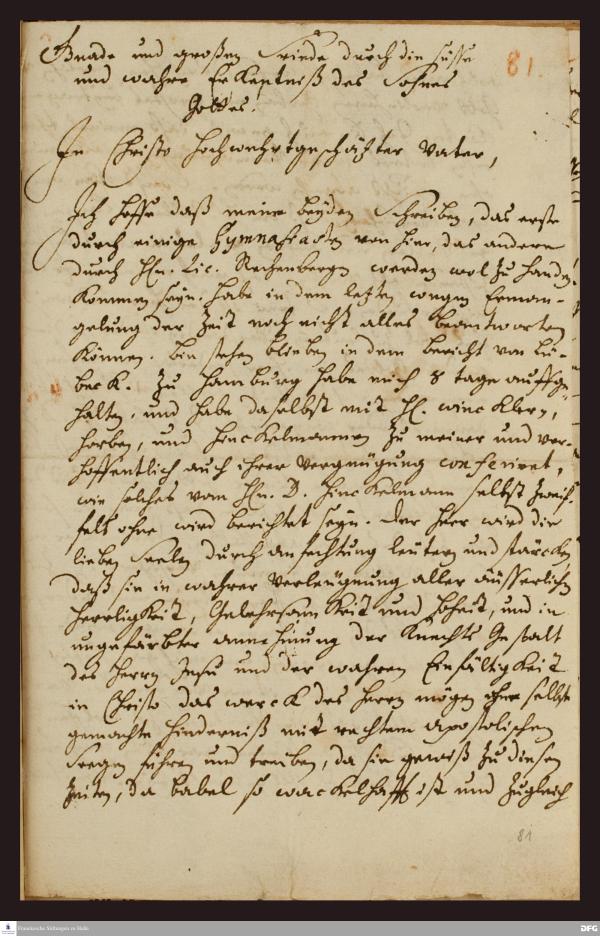 Gnade und großen Friede durch die süsse
81.
und wahre Erkentniß des Sohnes
Gottes.
In Christo Hochwehrtgeschätzter Vater,
Ich hoffe daß meine beyden Schreiben, das erste
durch einige Gymnasiasten von hier, das andere
durch Hn. Lic. Rechenbergen werden wol zu handen
kommen seyn. habe in dem letzten wegen Erman-
gelung der Zeit noch nicht alles beantworten
können. bin stehen blieben in dem bericht von Lü-
beck. Zu Hamburg habe mich 8 tage auffge-
halten, und habe daselbst mit H. Wincklern,
Horben, und Hinckelmannen zu meiner und ver-
hoffentlich auch ihrer Vergnügung conferiret,
wie solches vom Hn. D. Hinckelmann selbst zweif-
fels ohne wird berichtet seyn. Der Herr wird die
lieben Seelen durch anfechtung leutern und stärcken
daß sie in wahrer Verleugnung aller äusserlichen
Herrligkeit, Gelehrsamkeit und Hoheit, und in
ungefärbter annehmung der Knechts Gestalt
des Herrn Jesu und der wahren Einfältigkeit
in Christo das werck des Herrn mögen ohne selbst
gemachte Hinderniß mit rechtem Apostolischen
Seegen führen und treiben, da sie gewiß zu diesen
Zeiten, da Babel so wackelhafft ist und zugleich
81
Franckesche Stiftungen zu Halle
DFG